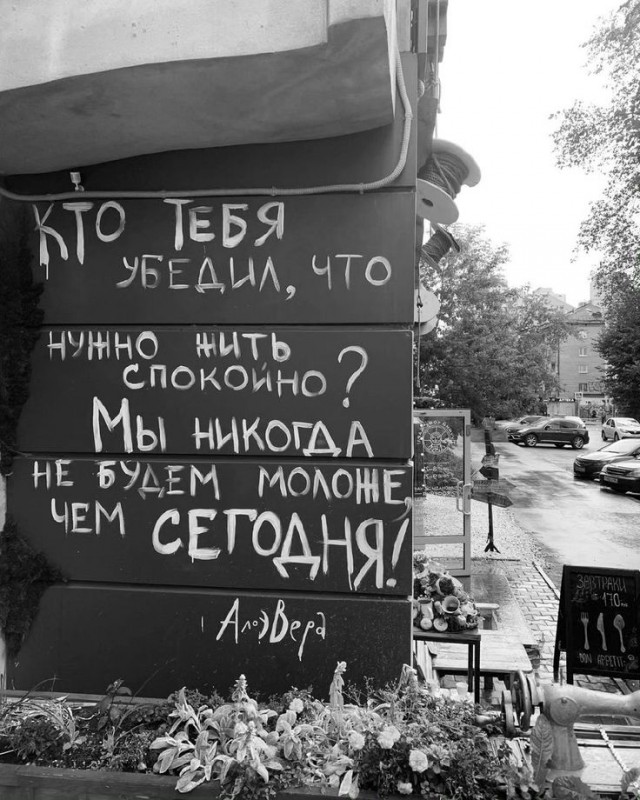 КТО ТЕБЯ
УБЕДИЛ, ЧТО
НУЖНО ЖИТЬ
СПОКОЙНО?
МЫ НИКОГДА
НЕ БУДЕМ МОЛОЖЕ,
ЧЕМ СЕГОДНЯ!
АлоэВера
ЗАВТРАКИ
170
BON APPETIT